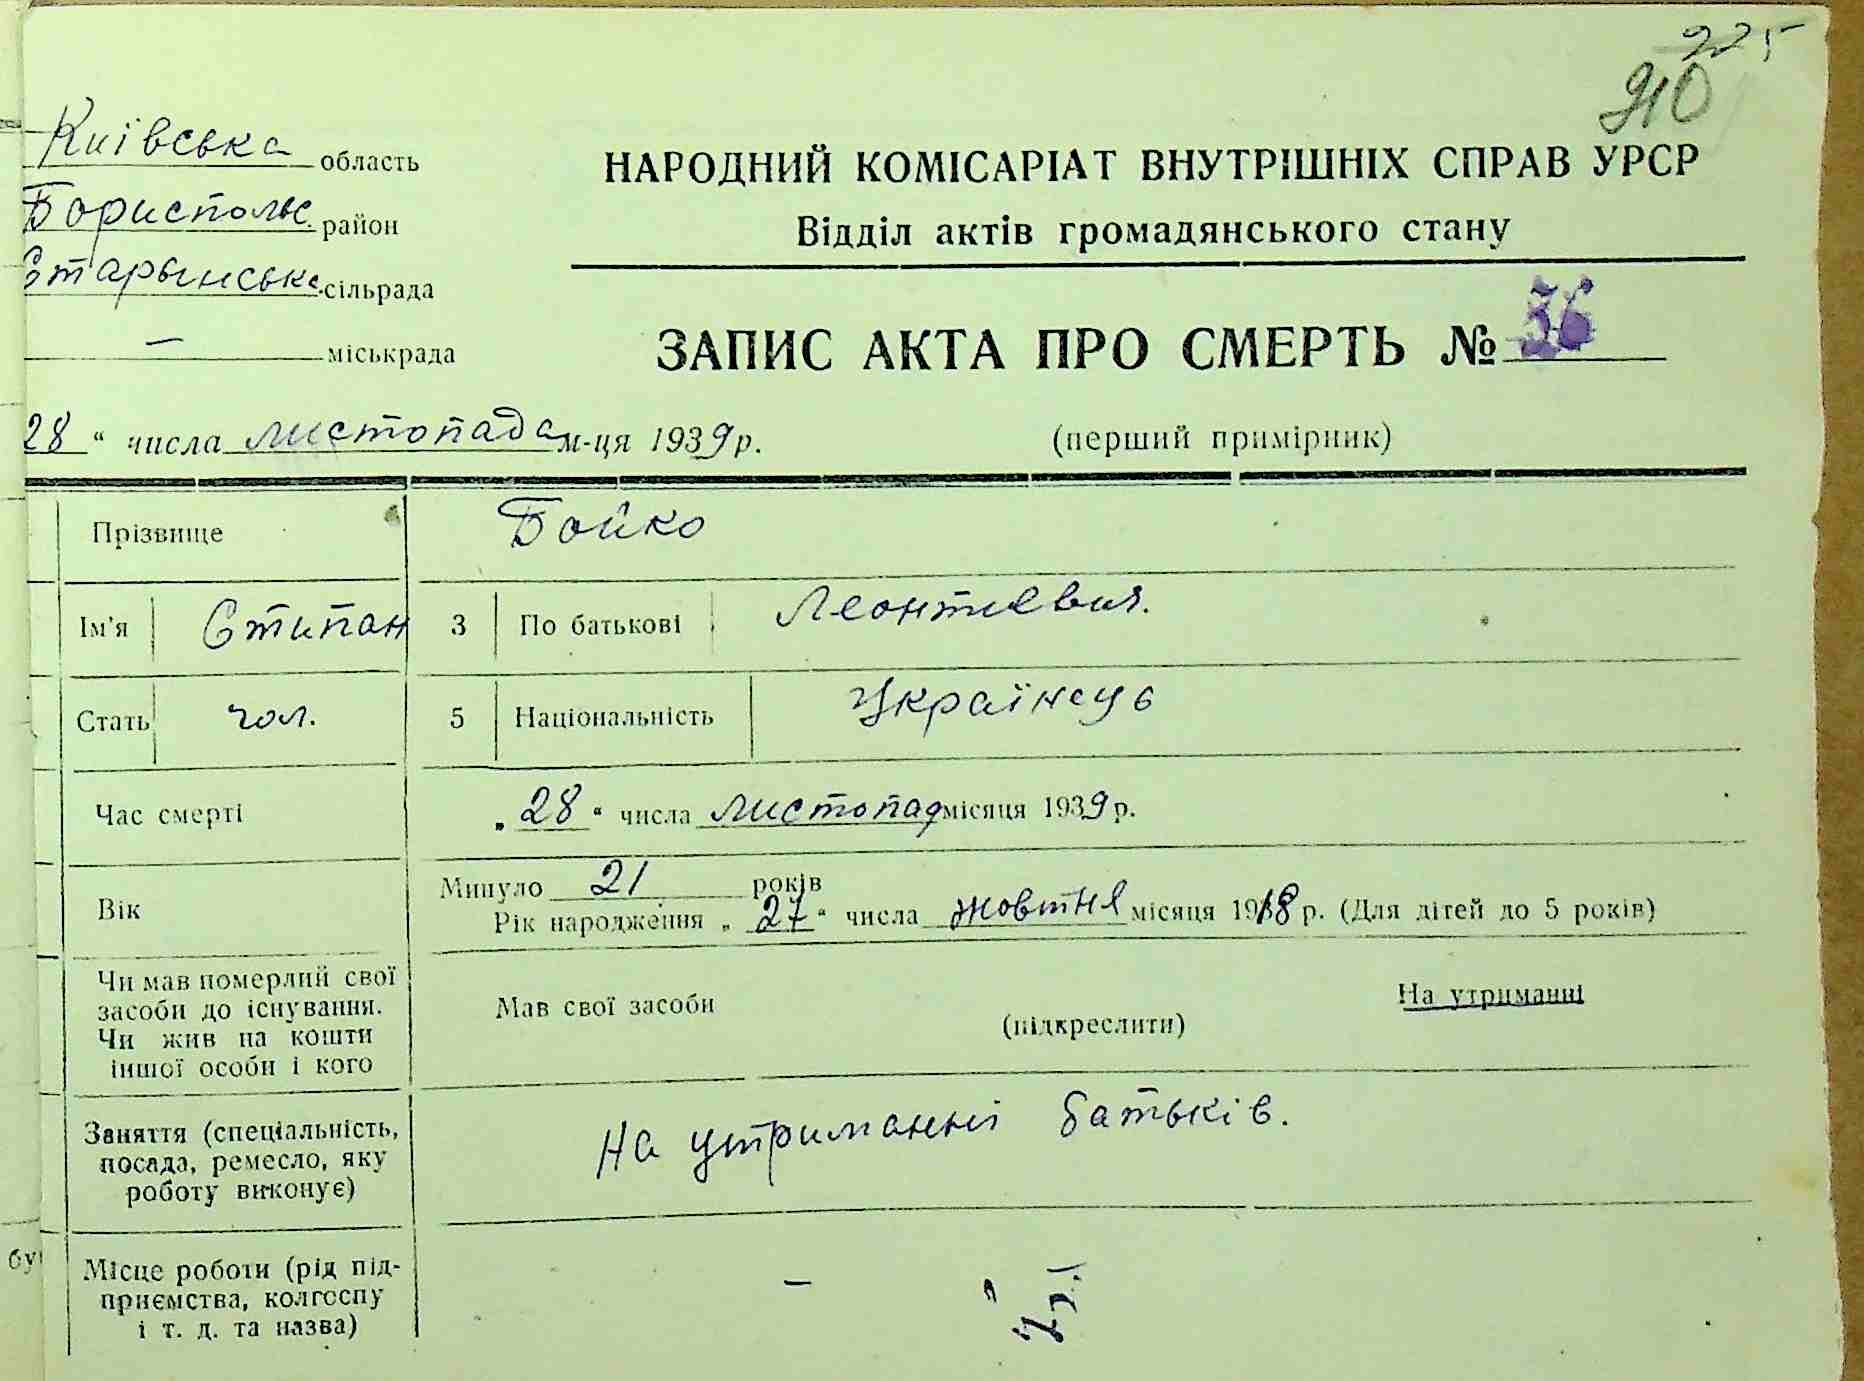 225
210
Київська область
Бориспольс. район
Старынська сільрада
— міськрада
НАРОДНИЙ КОМІСАРІАТ ВНУТРІШНІХ СПРАВ УРСР
Відділ актів громадянського стану
ЗАПИС АКТА ПРО СМЕРТЬ № 36
28 “ числа листопада м-ця 1939 р.
(перший примірник)
Прізвище Бойко
Ім'я Стипан 3 По батькові Леонтиевич.
Стать чол. 5 Національність Українець
Час смерті „ 28 “ числа листопад місяця 1939 р.
Вік Минуло 21 років
Рік народження „ 27 “ числа жовтня місяця 1918 р. (Для дітей до 5 років)
Чи мав померлий свої
засоби до існування.
Чи жив на кошти
іншої особи і кого
Мав свої засоби (підкреслити) На утриманні
Заняття (спеціальність,
посада, ремесло, яку
роботу виконує)
На утриманні батьків.
Місце роботи (рід під-
приємства, колгоспу
і т. д. та назва)
—